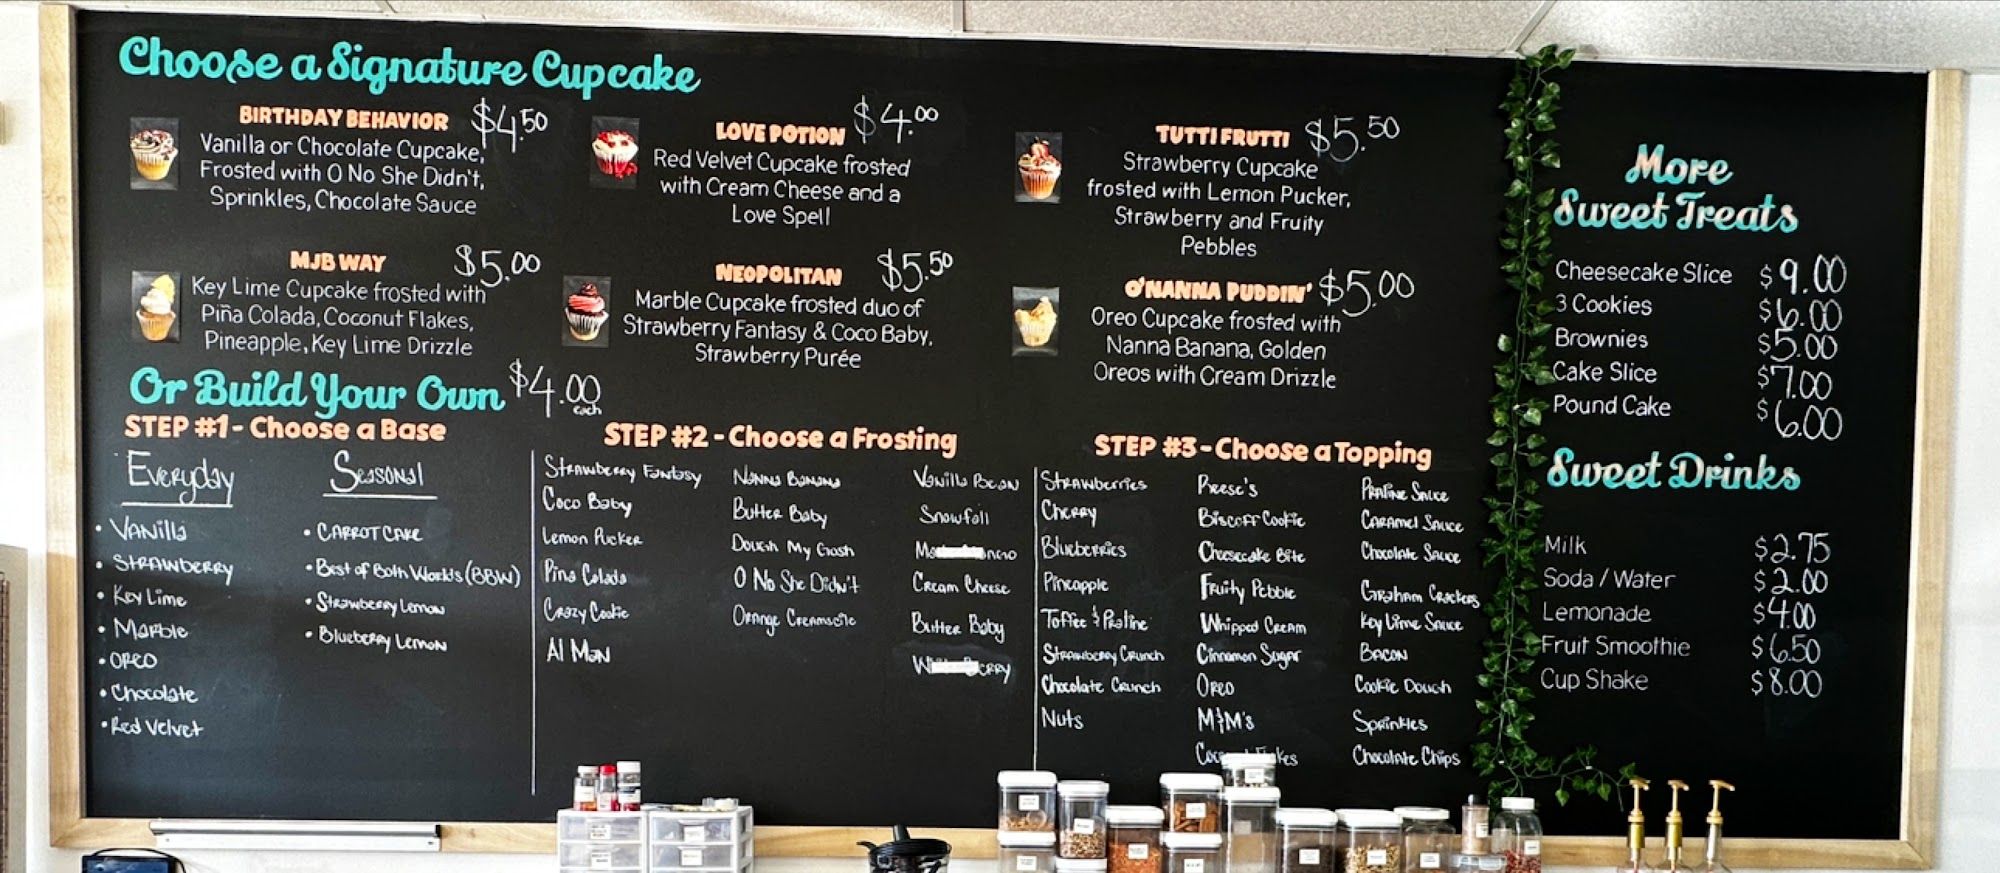 Choose a Signature Cupcake
BIRTHDAY BEHAVIOR $4.50
Vanilla or Chocolate Cupcake,
Frosted with O No She Didn't,
Sprinkles, Chocolate Sauce
LOVE POTION $4.00
Red Velvet Cupcake frosted
with Cream Cheese and a
Love Spell
TUTTI FRUTTI $5.50
Strawberry Cupcake
frosted with Lemon Pucker,
Strawberry and Fruity
Pebbles
MJB WAY $5.00
Key Lime Cupcake frosted with
Piña Colada, Coconut Flakes,
Pineapple, Key Lime Drizzle
NEOPOLITAN $5.50
Marble Cupcake frosted duo of
Strawberry Fantasy & Coco Baby,
Strawberry Purée
O'NANNA PUDDIN' $5.00
Oreo Cupcake frosted with
Nanna Banana, Golden
Oreos with Cream Drizzle
Or Build Your Own $4.00 each
STEP #1 - Choose a Base
Everyday
• Vanilla
• Strawberry
• Key Lime
• Marble
• Oreo
• Chocolate
• Red Velvet
Seasonal
• Carrot Cake
• Best of Both Worlds (BBW)
• Strawberry Lemon
• Blueberry Lemon
STEP #2 - Choose a Frosting
Strawberry Fantasy
Coco Baby
Lemon Pucker
Pina Colada
Crazy Cookie
Al Man
Nanna Banana
Butter Baby
Dough My Gosh
O No She Didn't
Orange Creamsicle
Vanilla Bean
Snowfall
Cream Cheese
Butter Baby
STEP #3 - Choose a Topping
Strawberries
Cherry
Blueberries
Pineapple
Toffee & Praline
Strawberry Crunch
Chocolate Crunch
Nuts
Reese's
Biscoff Cookie
Cheesecake Bite
Fruity Pebble
Whipped Cream
Cinnamon Sugar
Oreo
M&M's
Praline Sauce
Caramel Sauce
Chocolate Sauce
Graham Crackers
Key Lime Sauce
Bacon
Cookie Dough
Sprinkles
Chocolate Chips
More
Sweet Treats
Cheesecake Slice $9.00
3 Cookies $6.00
Brownies $5.00
Cake Slice $7.00
Pound Cake $6.00
Sweet Drinks
Milk $2.75
Soda / Water $2.00
Lemonade $4.00
Fruit Smoothie $6.50
Cup Shake $8.00